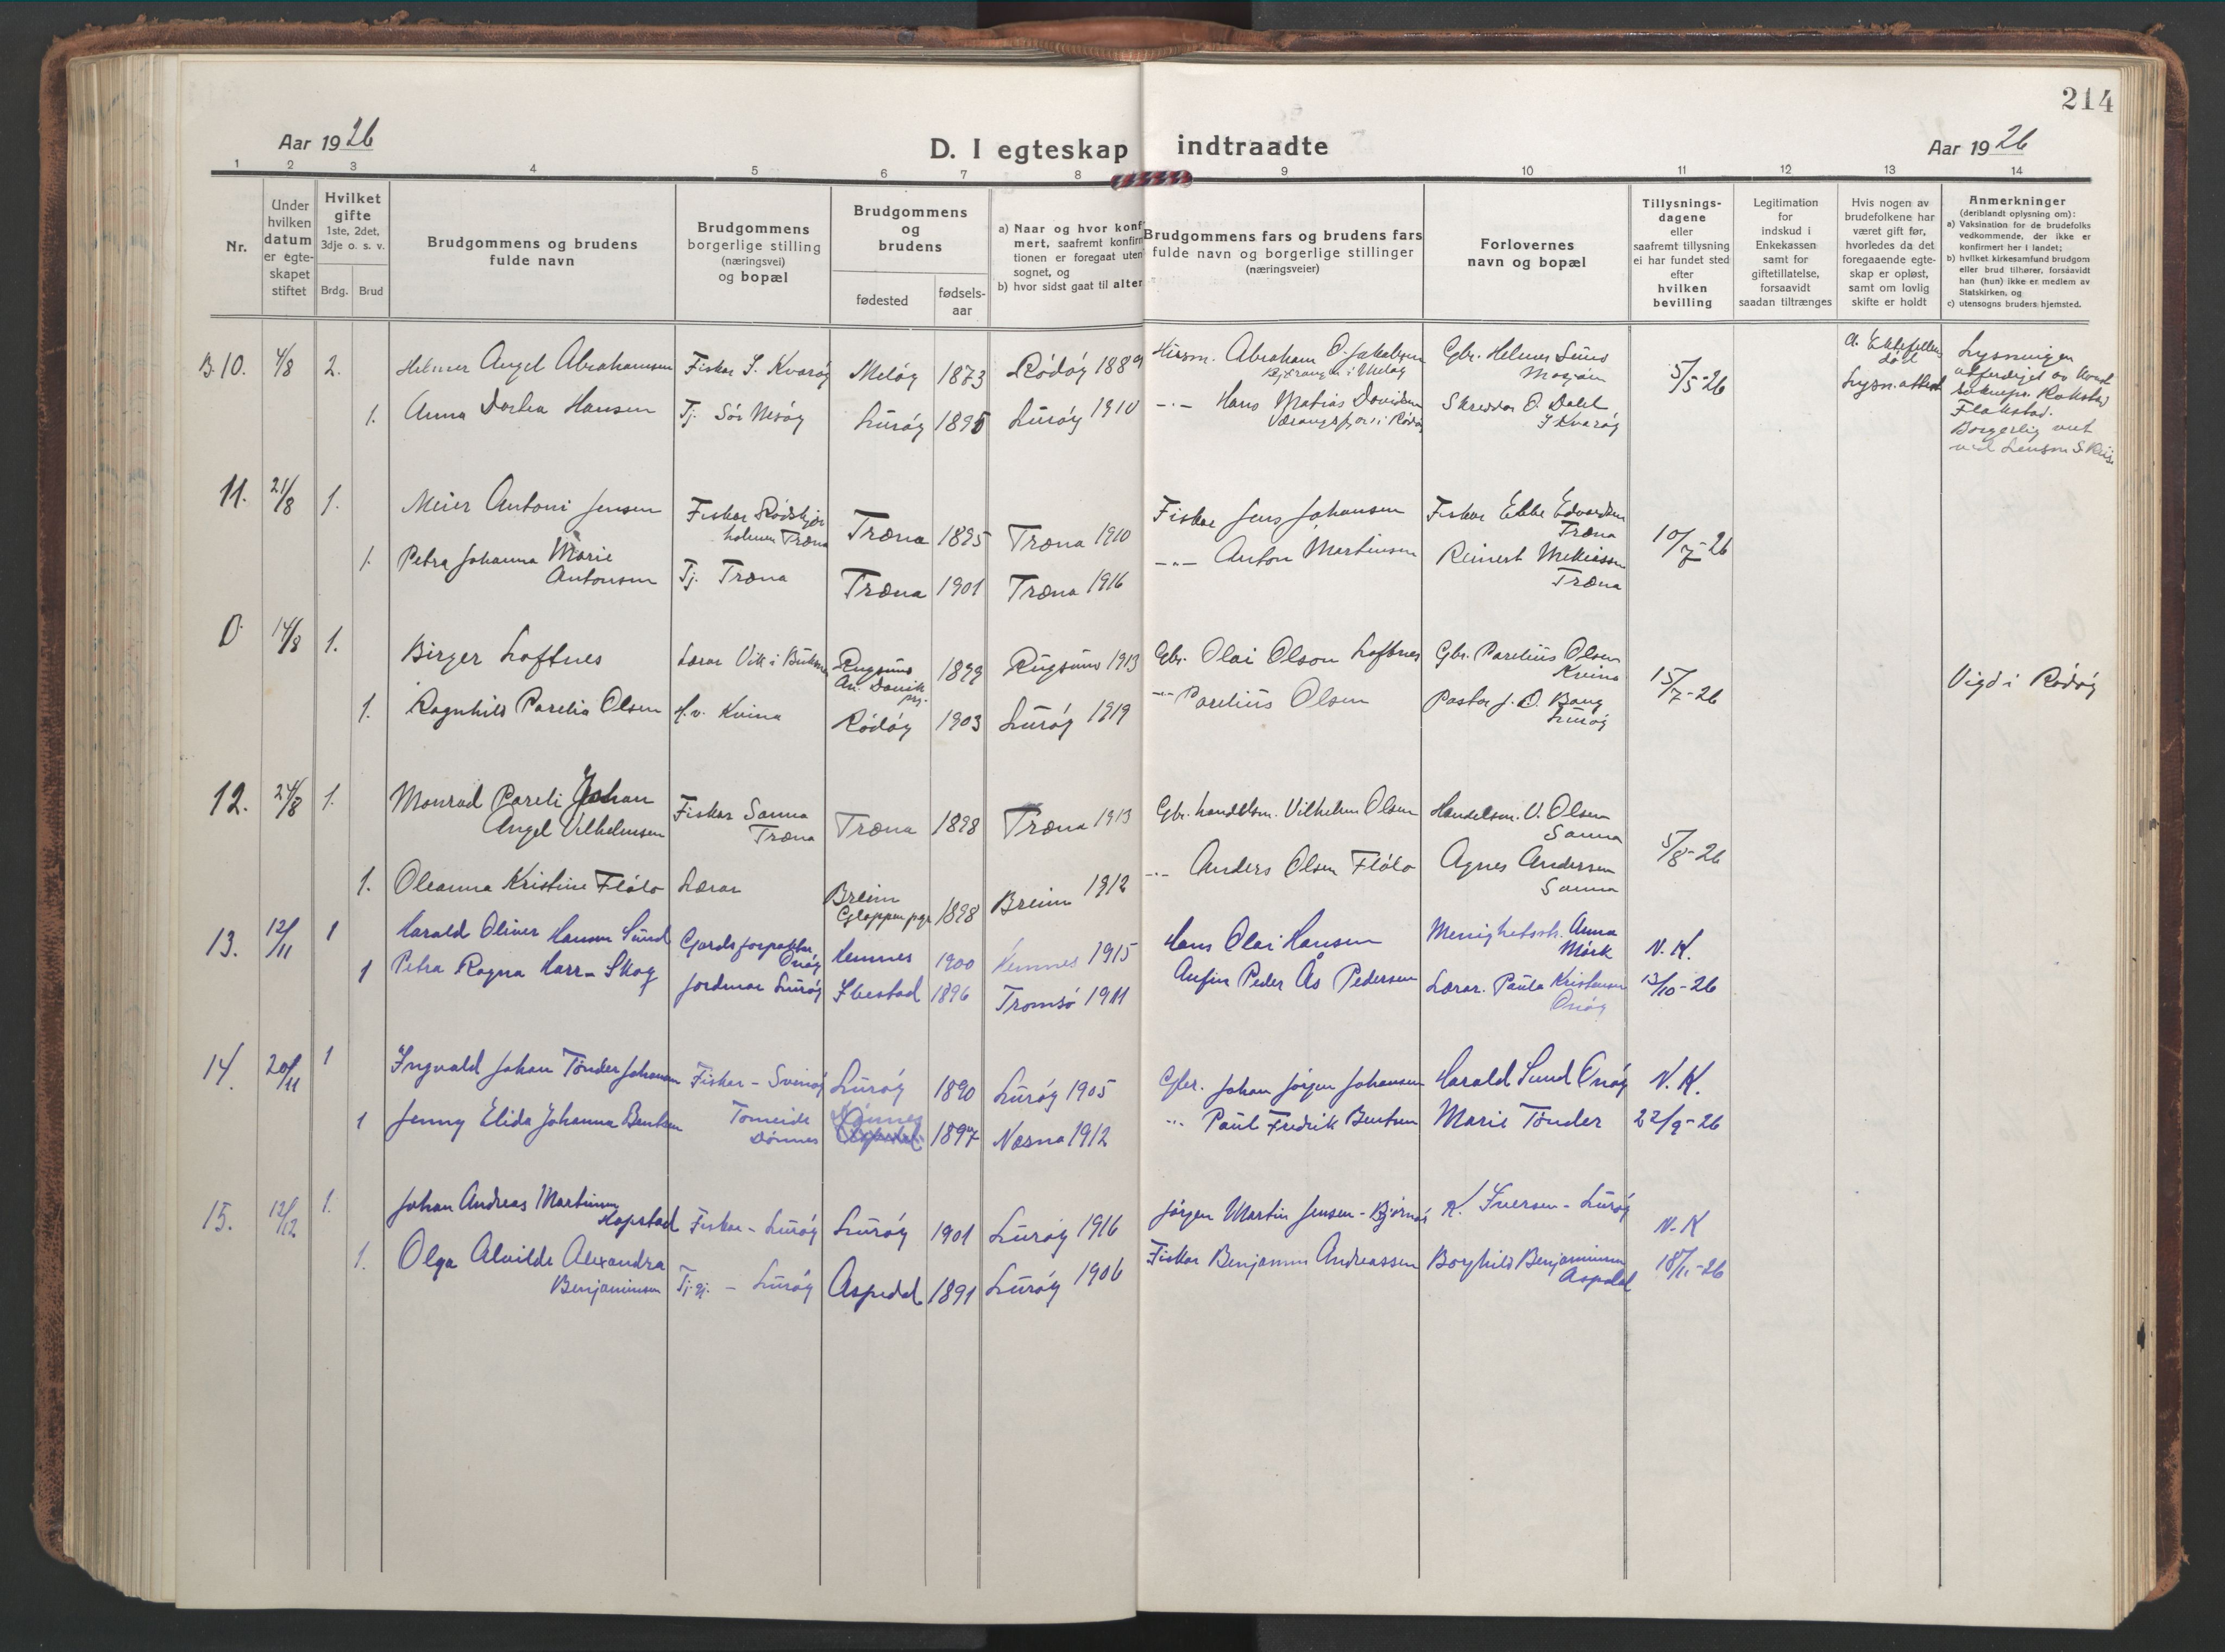 214
Aar 1926
D. I egteskap indtraadte
Aar 1926
1 2 3 4 5 6 7 8 9 10 11 12 13 14
Nr.
Under hvilken datum er egte-skapet stiftet
Hvilket gifte 1ste, 2det, 3dje o. s. v.
Brdg. Brud
Brudgommens og brudens fulde navn
Brudgommens borgerlige stilling (næringsvei) og bopæl
Brudgommens og brudens
fødested
fødsels-aar
a) Naar og hvor konf
mert, saafremt konfirm
tionen er foregaat uten
sognet, og
b) hvor sidst gaat til alter
Brudgommens fars og brudens fars
fulde navn og borgerlige stillinger
(næringsveier)
Forlovernes
navn og bopæl
Tillysnings-dagene eller saafremt tillysning ei har fundet sted efter hvilken bevilling
Legitimation for indskud i Enkekassen samt for giftetillatelse, forsaavidt saadan tiltrænges
Hvis nogen av brudefolkene har været gift før, hvorledes da det foregaaende egte-skap er opløst, samt om lovlig skifte er holdt
Anmerkninger
(deriblandt oplysning om):
a) Vaksination for de brudefolks vedkommende, der ikke er konfirmert her i landet;
b) hvilket kirkesamfund brudgom eller brud tilhører, forsaavidt han (hun) ikke er medlem av Statskirken, og
c) utensogns bruders hjemsted.
B.10. 4/8 2. Helmer Angel Abrahamsen Fisker I. Kvarøy Meløy 1873 Rødøy 1889 Abraham O. Jakobsen Gbr. Helmer 5/5-26
1. Anna Dorthea Hansen Tj. Sør Nesøy Lurøy 1895 Lurøy 1910 -"- Hans Matias Davidsen Skredder O. Dahl
I Kvarøy
Lysningen
Flakstad.
Borgerlig viet
11. 21/8 1. Meier Antoni Jensen Fisker Rødskjær
holmen Træna Træna 1895 Træna 1910 Fisker Jens Johansen Fisker Ebbe Edvardsen
Træna 10/7-26
1. Petra Johanna Marie
Antonsen Tj. Træna Træna 1901 Træna 1916 -"- Anton Martinsen Reinert
Træna
0 14/8 1. Birger Loftnes Lærer Vik i Rugsund 1899 Rugsund 1913 Gbr. Olai Olson Loftnes Gbr. Parelius Olsen
Kvina 15/7-26 Vigd i Rødøy
1. Ragnhild Parelia Olsen H.v. Kvina Rødøy 1903 Lurøy 1919 -"- Parelius Olsen Pastor J. O. Bang
Lurøy
12. 24/8 1. Monrad Pareli Johan
Angel Vilhelmsen Fisker Sanna
Træna Træna 1898 Træna 1913 Gbr. handelsm. Vilhelm Olsen Handelsm. V. Olsen
Sanna 5/8-26
1. Oleanna Kristine Fløto Lærer Breim
Gloppen pgj 1898 Breim 1912 -"- Anders Olsen Fløto Agnes Andersen
Sanna
13. 12/11 1 Harald Oliver Hansen Sund Gardsforpakter
Onøy Hemnes 1900 Hemnes 1915 Hans Olai Hansen Menighetssøs. Anna
Mørk N. K.
1 Petra Ragna Harr-Skog Jordmor Lurøy Ibestad 1896 Tromsø 1911 Peder Ås Pedersen Lærer. Paula Kristensen
Onøy 13/10-26
14. 20/11 1 Ingvald Johan Tønder Johansen Fisker - Svinøy Lurøy 1890 Lurøy 1905 Gbr. Johan Jørgen Johansen Harald Sund Onøy N. K.
1 Jenny Elida Johanna Bentsen Tomeide
Dønnes Dønnes 1897 Nesna 1912 -"- Paul Fredrik Bentsen Marie Tønder 22/9-26
15. 12/12 1. Johan Andreas Martinsen
Kopstad Fisker - Lurøy Lurøy 1901 Lurøy 1916 Jørgen Martin Jensen - Bjørnøs K. Iversen - Lurøy N.K
1. Olga Alvilde Alexandra
Benjaminsen Tj.gj. - Lurøy Aspedal 1891 Lurøy 1906 Fisker Benjamin Andreassen Borghild Benjaminsen
Aspdal 18/11-26